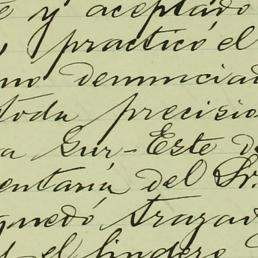 e y aceptado
, practicó el
mo denunciad
toda precisio
a Sur-Este de
entana del Sr.
quedó trazad
el lindero